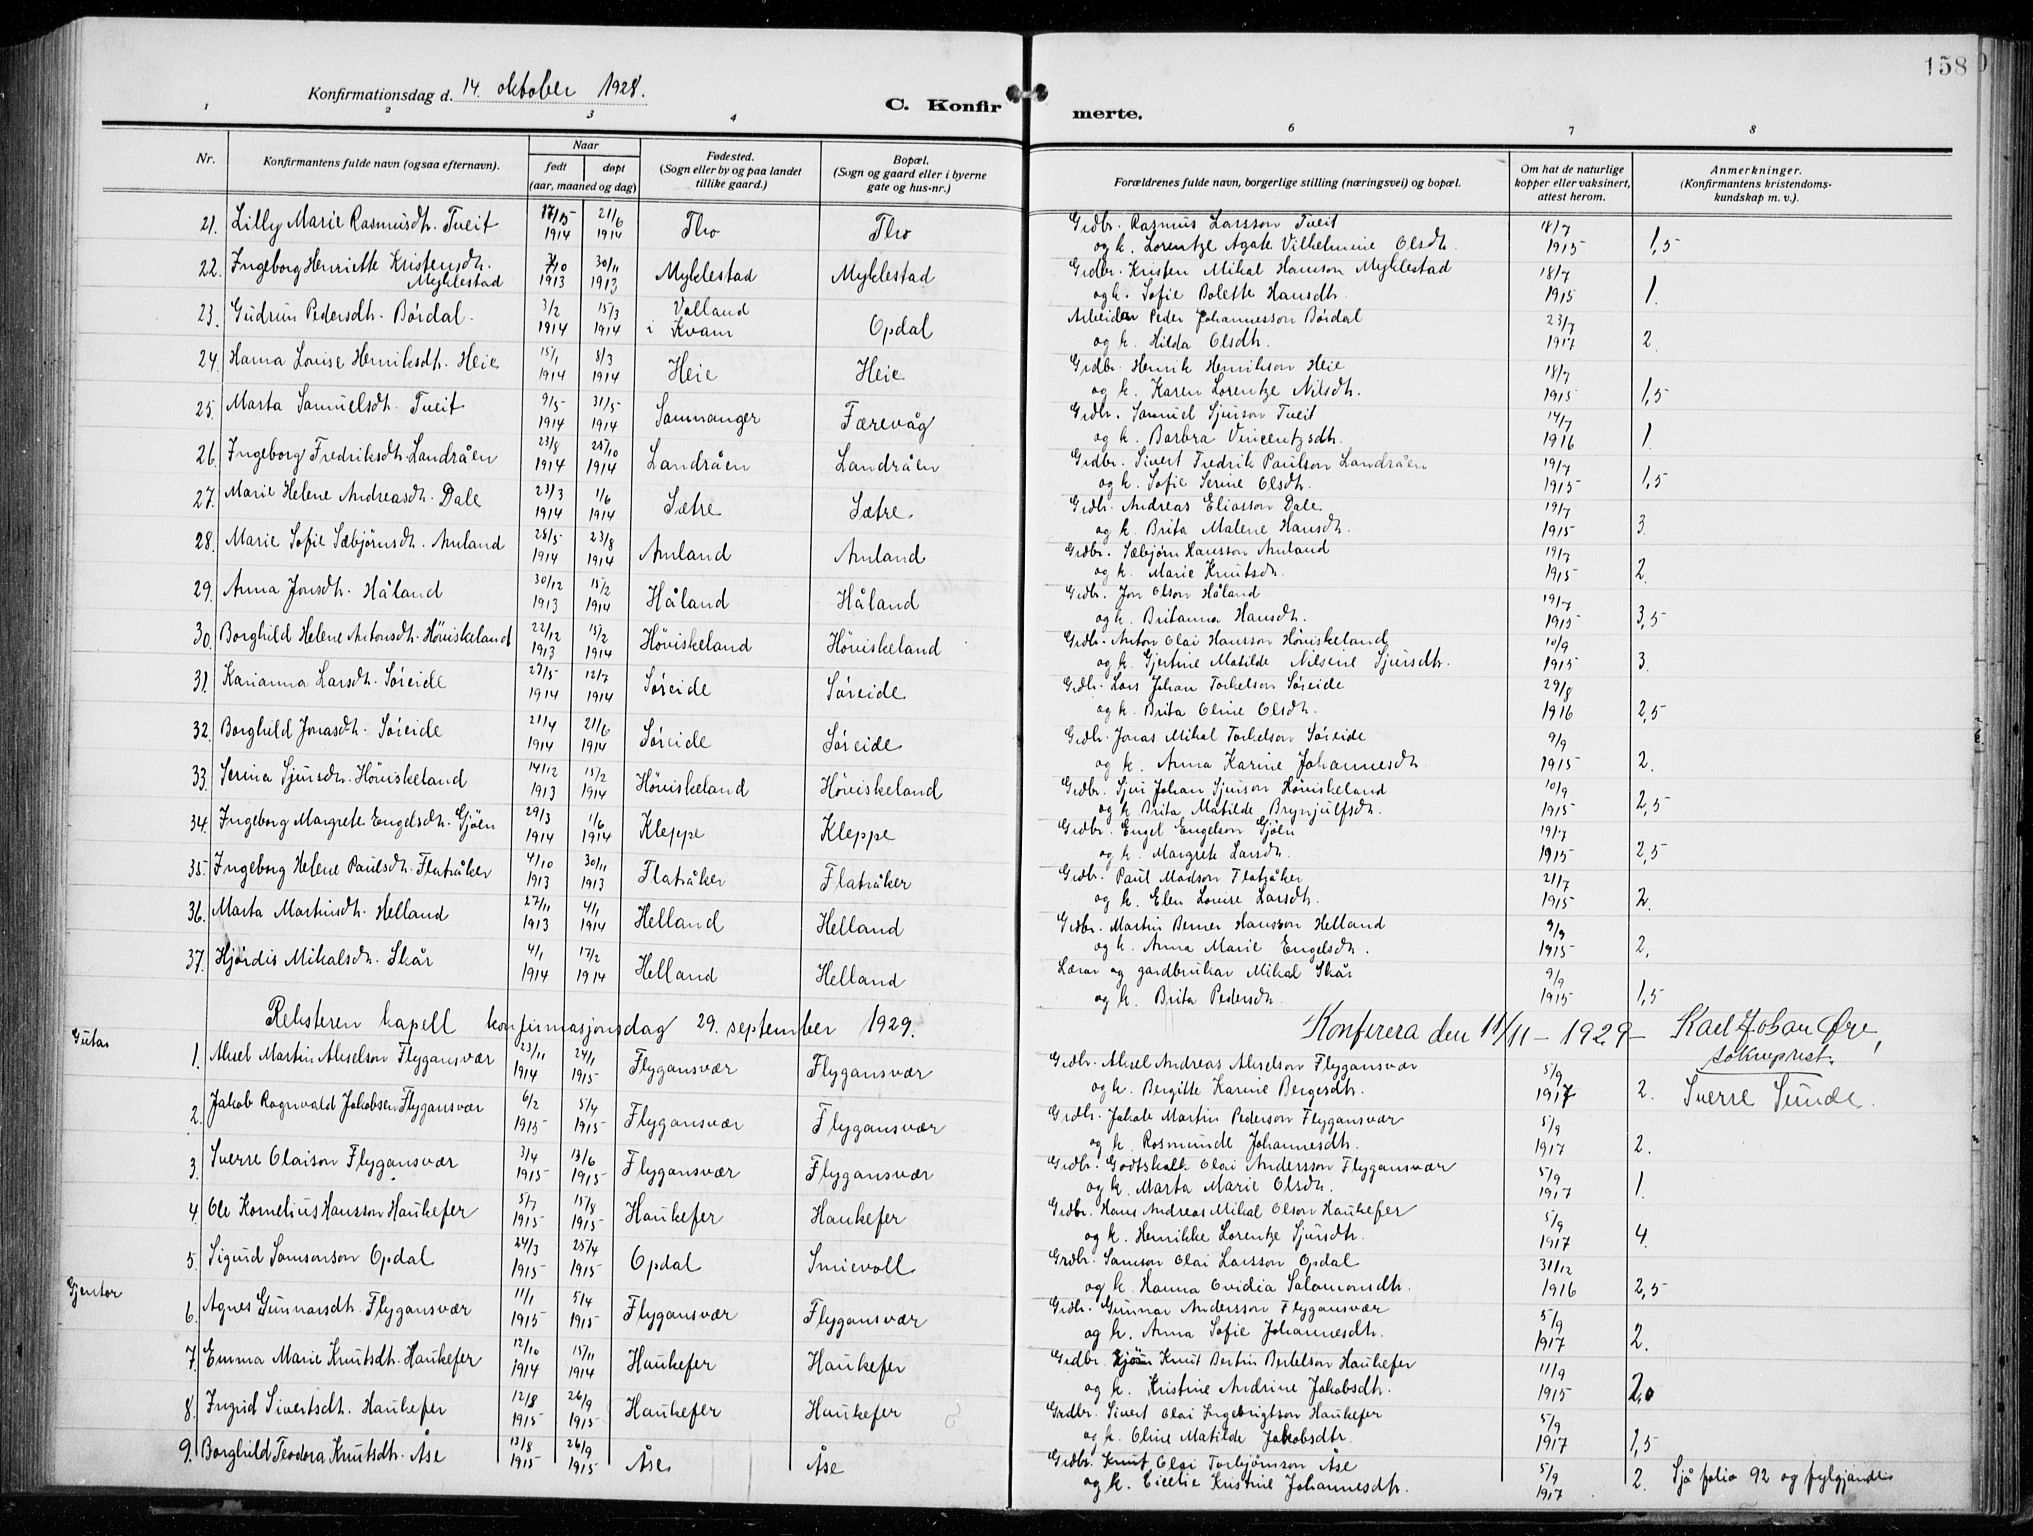 158
Konfirmationsdag d. 14. oktober 1928.
C. Konfirmerte.
1 2 3 4 6 7 8
Nr. Konfirmantens fulde navn (ogsaa efternavn). Naar født døpt (aar, maaned og dag) Fødested. (Sogn eller by og paa landet tillike gaard.) Bopæl. (Sogn og gaard eller i byerne gate og hus-nr.) Forældrenes fulde navn, borgerlige stilling (næringsvei) og bopæl. Om hat de naturlige kopper eller vaksinert, attest herom. Anmerkninger. (Konfirmantens kristendoms- kundskap m. v.).
21. Lilly Marie Rasmusdh. Tveit 1914 21/6 1914 Tho Tho Grdbr. Rasmus Larsson Tveit 18/7
og k. Lorentze Agate Vilhelmine Olsdh. 1915 1,5
22. Ingeborg Henriette Kristensdh. Myklestad 1913 30/11 1913 Myklestad Myklestad Grdbr. Kristen Mikal Hansson Myklestad 18/7
og k. Sofie Bolette Hansdh. 1915 1.
23. Gudrun Pedersdh. Børdal 3/2 1914 15/3 1914 Volland i Kvam Opdal Arbeidar Peder Johannesson Børdal 23/7
og k. Hilda Olsdh. 1917 2.
24. Hanna Lovise Henriksdh. Heie 15/1 1914 8/3 1914 Heie Heie Grdbr. Henrik Henrikson Heie 18/7
og k. Karen Lorentze Nilsdh. 1915 1,5
25. Marta Samuelsdh. Tveit 9/5 1914 31/5 1914 Samnanger Færevåg Grdbr. Samuel Sjurson Tveit 14/7
og k. Barbra Vincentzsdh. 1916 1.
26. Ingeborg Fredriksdh. Landråen 23/8 1914 25/10 1914 Landråen Landråen Grdbr. Sivert Fredrik Paulson Landråen 19/7
og k. Sofie Serine Olsdh. 1915 1,5
27. Marie Helene Andreasdh. Dale 23/3 1914 1/6 1914 Sætre Sætre. Grdbr. Andreas Eliasson Dale 19/7
og k. Brita Malene Hansdh. 1915 3.
28. Marie Sofie Sæbjørnsdh. Anland 28/5 1914 23/8 1914 Anland Anland Grdbr. Sæbjørn Hansson Anland 19/7
og k. Marie Knutsdh. 1915 2.
29. Anna Jonsdh. Håland 30/12 1913 15/2 1914 Håland Håland Grdbr. Jon Olson Håland 19/7
og k. Britanna Hansdh. 1915 3,5
30. Borghild Helene Antonsdh. Høviskeland 22/12 1913 15/2 1914 Høviskeland Høviskeland Grdbr. Anton Olai Hansson Høviskeland 10/9
og k. Gjertine Matilde Nilsine Sjursdh. 1915 3.
31. Karianna Larsdh. Søreide 27/5 1914 12/7 1914 Søreide Søreide Grdbr. Lars Johan Torkelson Søreide 29/8
og k. Brita Oline Olsdh. 1916 2,5
32. Borghild Jonasdh. Søreide 21/4 1914 21/6 1914 Søreide Søreide Grdbr. Jonas Mikal Torkelson Søreide 9/9
og k. Anna Karine Johannesdh 1915 2.
33. Serina Sjursdh. Høviskeland 14/12 1913 15/2 1914 Høviskeland Høviskeland Grdbr. Sjur Johan Sjurson Høviskeland 10/9
og k. Brita Matilde Brynjulfsdh. 1915 2,5
34. Ingeborg Margrete Engelsdh. Gjøen 29/3 1914 1/6 1914 Kleppe Kleppe Grdbr. Engel Engelson Gjøen 19/7
og k. Margrete Larsdh. 1915 2,5
35. Ingeborg Helene Paulsdh. Flatråker 4/10 1913 30/11 1913 Flatråker Flatråker Grdbr. Paul Madson Flatråker 21/7
og k. Elen Lovise Larsdh. 1915 2.
36. Marta Martinsdh. Helland 27/11 1913 4/1 1914 Helland Helland Grdbr. Martin Berner Hansson Helland 9/9
og k. Anna Marie Engelsdh. 1915 2.
37. Hjørdis Mikalsdh. Skår 4/1 1914 17/2 1914 Helland Helland Lærar og gardbrukar Mikal Skår 9/9
og k. Brita Pedersdh. 1915 1,5
Reksteren kapell konfirmasjonsdag 29. september 1929. Konferera den 11/11 - 1929 - Karl Johan Øye, sokneprest.
Gutar
1. Aksel Martin Akselson Flygansvær 23/11 1914 24/1 1915 Flygansvær Flygansvær Grdbr. Aksel Andreas Akselson Flygansvær 5/9
og k. Bergitte Karine Bergesdh. 1917 2. Sverre Sunde.
2. Jakob Ragnvald Jakobsen Flygansvær 6/2 1915 5/4 1915 Flygansvær Flygansvær Grdbr. Jakob Martin Pederson Flygansvær 5/9
og k. Rasmunde Johannesdh. 1917 2.
3. Sverre Olaison Flygansvær 3/4 1915 13/6 1915 Flygansvær Flygansvær Grdbr. Godtskalk Olai Andersson Flygansvær 5/9
og k. Marta Marie Olsdh. 1917 1.
4. Ole Kornelius Hansson Haukefer 5/7 1915 15/8 1915 Haukefer Haukefer Grdbr. Hans Andreas Mikal Olson Haukefer 5/9
og k. Henrikke Lorentze Sjursdh. 1917 4.
5. Sigurd Samsonson Opdal 24/3 1915 25/4 1915 Opdal Smievoll Grdbr. Samson Olai Larsson Opdal 31/12
og k. Hanna Ovidia Salamonsdh. 1916 2,5
Gjentor
6. Agnes Gunnarsdh. Flygansvær 11/1 1915 5/4 1915 Flygansvær Flygansvær Grdbr. Gunnar Andersson Flygansvær 5/9
og k. Anna Sofie Johannesdh. 1917 2.
7. Emma Marie Knutsdh. Haukefer 12/10 1914 15/11 1914 Haukefer Haukefer Grdbr. Knut Bertin Bertelson Haukefer 11/9
og k. Kristine Andrine Jakobsdh. 1915 2,0
8. Ingrid Sivertsdh. Haukefer 12/8 1915 26/9 1915 Haukefer Haukefer Grdbr. Sivert Olai Ingebrigtson Haukefer 5/9
og k. Oline Matilde Jakobsdtr. 1917 1,5
9. Borghild Teodora Knutsdh. Åse 13/8 1915 26/9 1915 Åse Åse Grdbr. Knut Olai Torbjørnson Åse 5/9
og k. Cicelie Kristine Johannesdtr. 1917 2. Sjå folio 92 og fylgjande